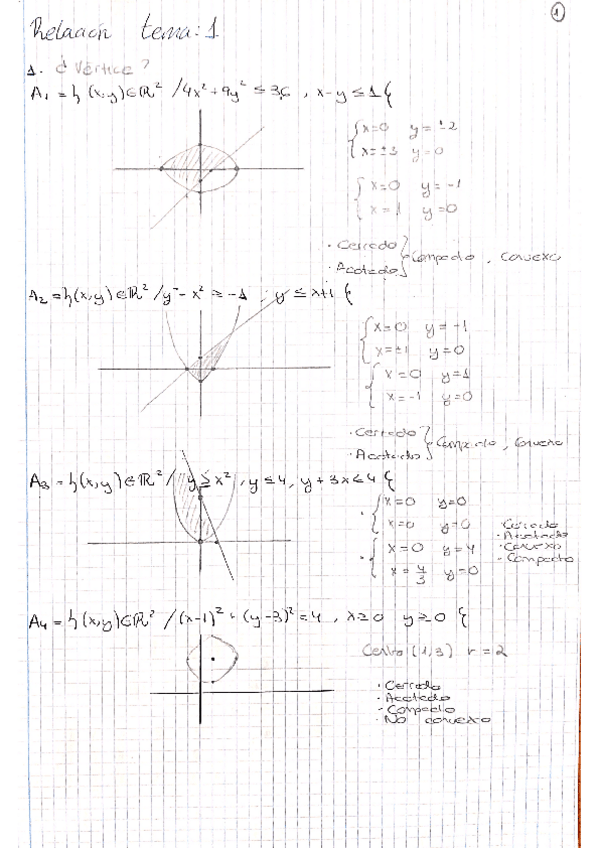 1
Relación tema: 1
1. ¿Vértice?
A₁ = { (x,y) ∈ ℝ² / 4x² + 9y² ≤ 36 , x-y ≤ 1 {
x=0 y=±2
x=±3 y=0
x=0 y=-1
x=1 y=0
· Cerrado
· Acotado } Compacto , Convexo
A₂ = { (x,y) ∈ ℝ² / y - x² ≥ -1 ; y ≤ x+1 {
x=0 y=-1
x=±1 y=0
x=0 y=1
x=-1 y=0
· Cerrado
· Acotado } Compacto , Convexo
A₃ = { (x,y) ∈ ℝ² / y ≥ x² , y ≤ 4, y + 3x ≤ 4 {
x=0 y=0
x=0 y=0
x=0 y=4
x=4/3 y=0
· Cerrado
· Acotado
· Convexo
· Compacto
A₄ = { (x,y) ∈ ℝ² / (x-1)² + (y-3)² = 4 , x ≥ 0 y ≥ 0 {
Centro (1,3) r = 2
· Cerrado
· Acotado
· Compacto
· No convexo